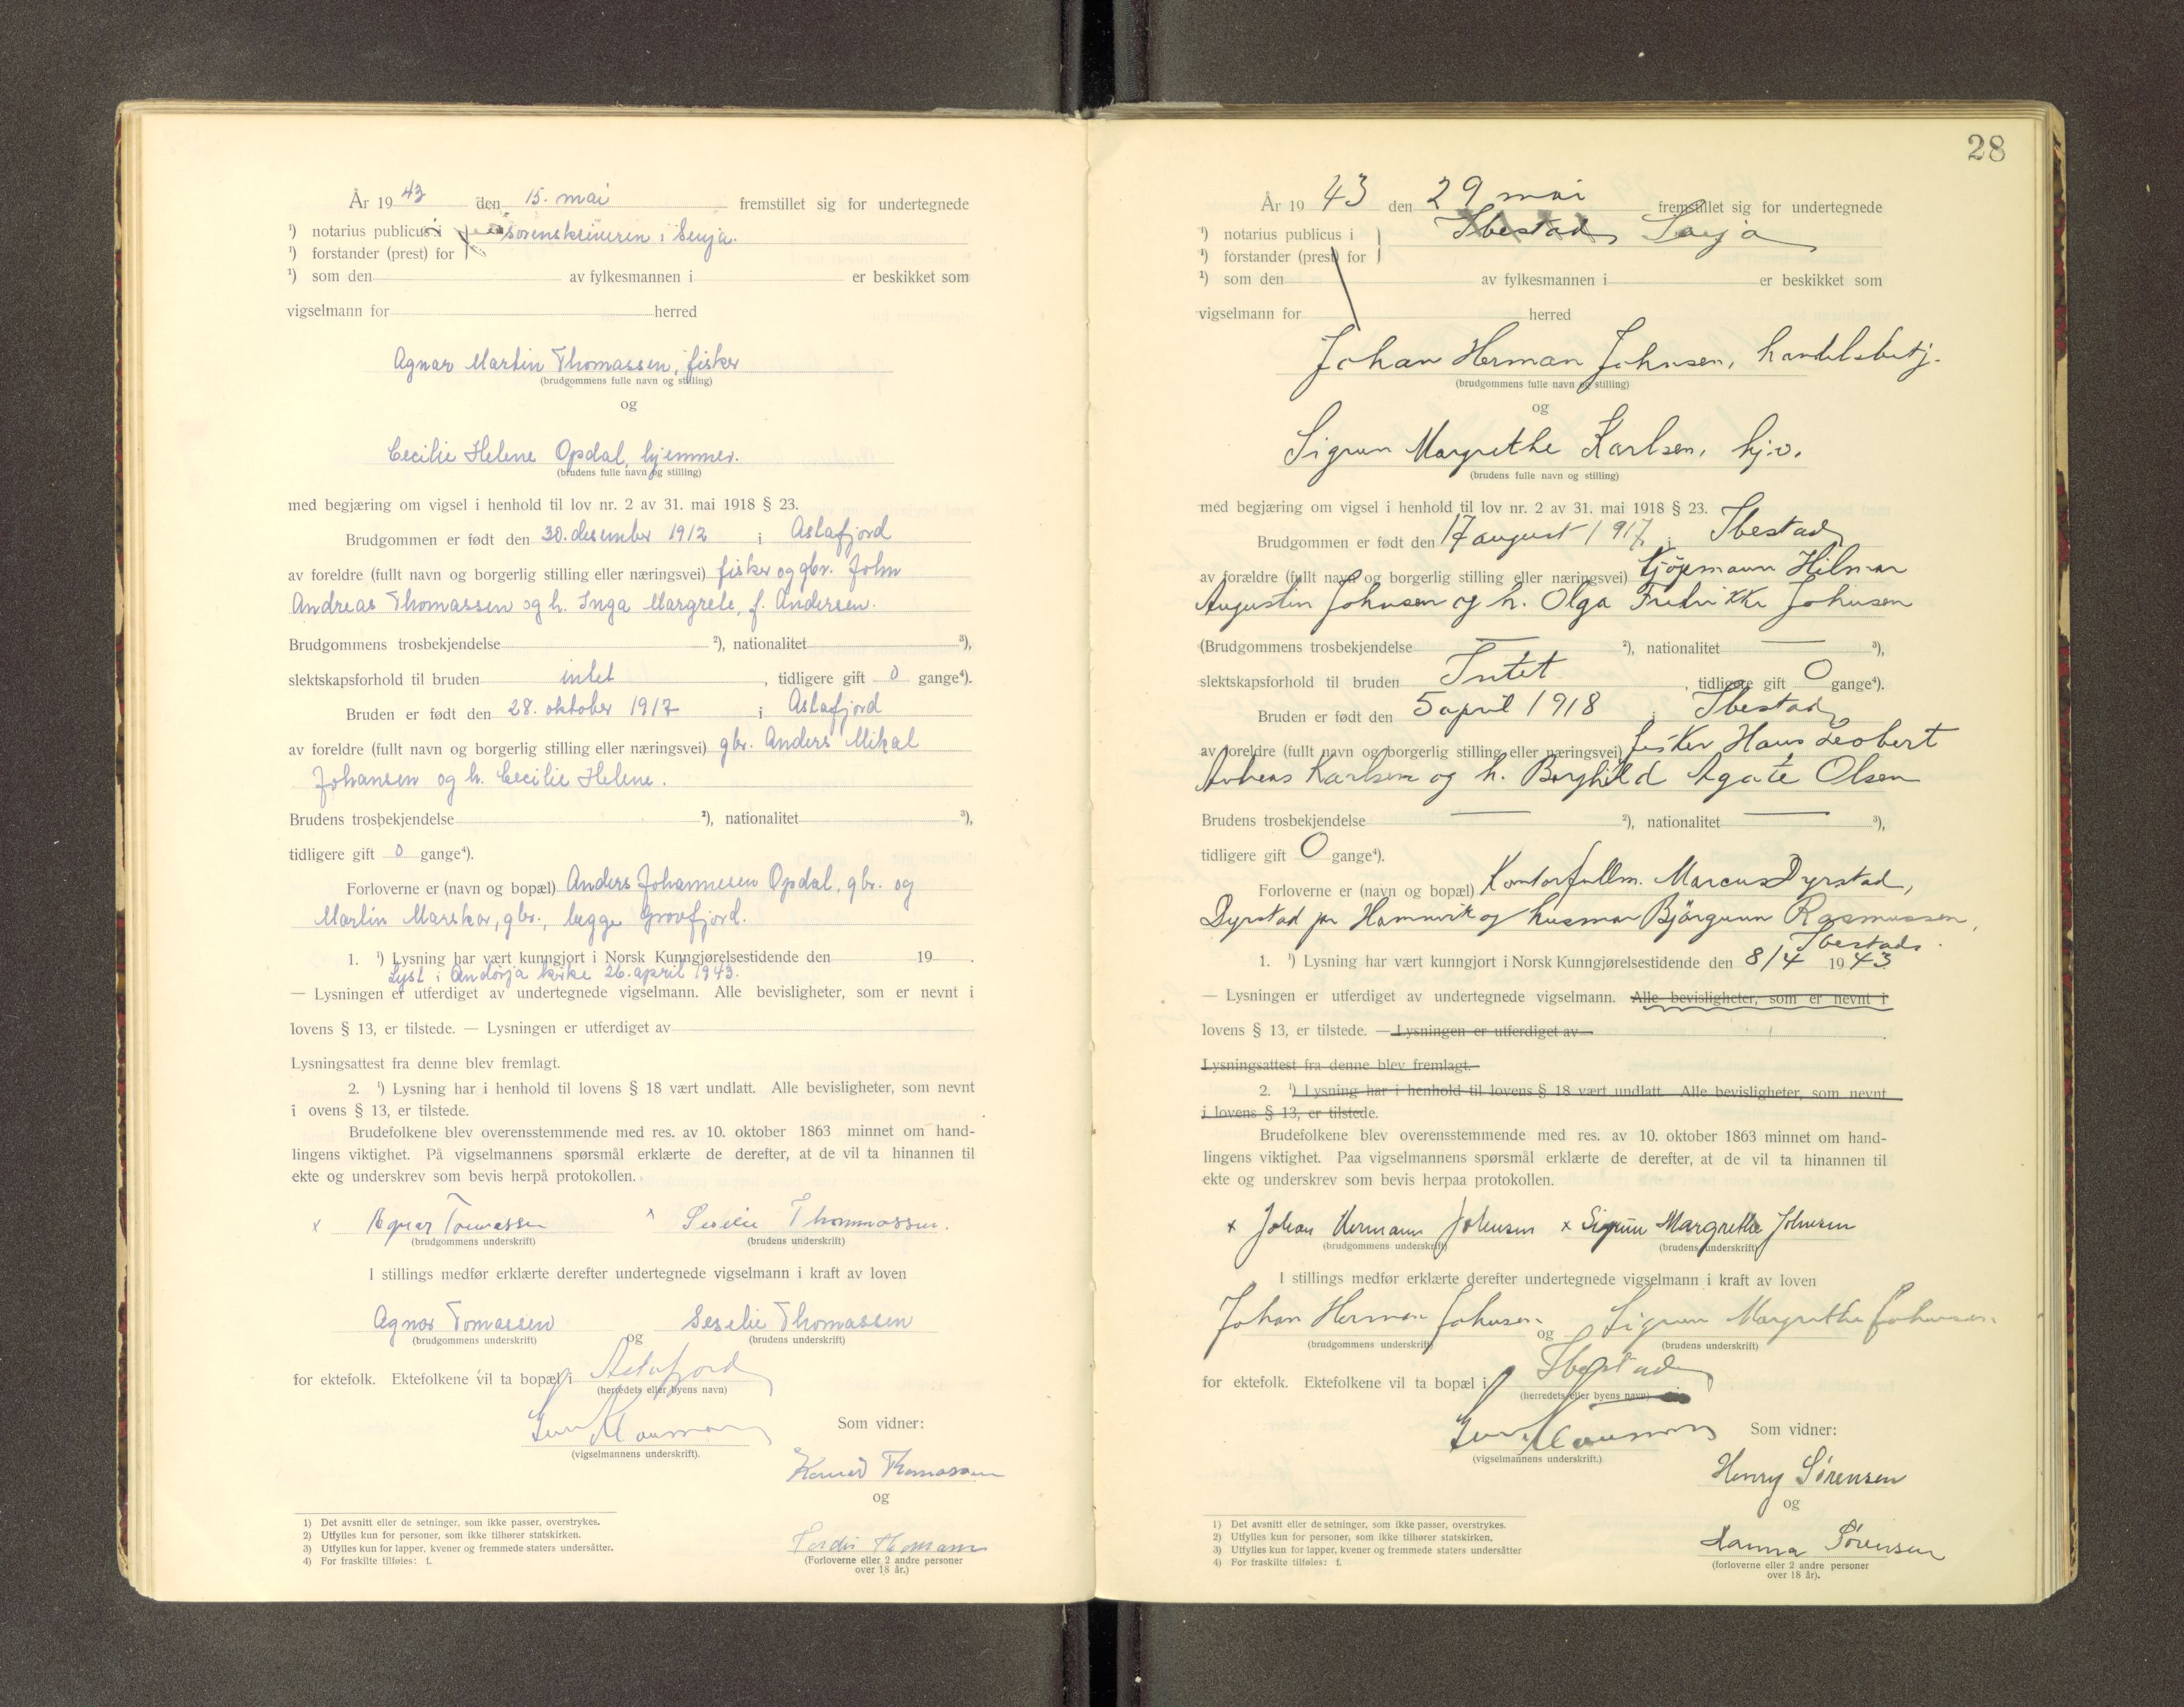 År 19 43 den 15. mai fremstillet sig for undertegnede
¹) notarius publicus i sorenskriveren i Senja.
¹) forstander (prest) for
¹) som den av fylkesmannen i er beskikket som
vigselmann for herred
Agnar Martin Thomassen, fisker
(brudgommens fulle navn og stilling)
og
Cecilie Helene Opdal, hjemmev.
(brudens fulle navn og stilling)
med begjæring om vigsel i henhold til lov nr. 2 av 31. mai 1918 § 23.
Brudgommen er født den 30. desember 1912 i Astafjord
av foreldre (fullt navn og borgerlig stilling eller næringsvei) fisker og gbr. John
Andreas Thomassen og h. Inga Margrete, f. Andersen.
Brudgommens trosbekjendelse ²), nationalitet ³),
slektskapsforhold til bruden intet , tidligere gift 0 gange⁴).
Bruden er født den 28. oktober 1917 i Astafjord
av foreldre (fullt navn og borgerlig stilling eller næringsvei) gbr. Anders Mikal
Johansen og h. Cecilie Helene.
Brudens trosbekjendelse ²), nationalitet ³),
tidligere gift 0 gange⁴).
Forloverne er (navn og bopæl) Anders Johannesen Opdal, gbr. og
Martin Marskar, gbr., begge Grovfjord.
1. ¹) Lysning har vært kunngjort i Norsk Kunngjørelsestidende den 19 .
Lyst i Andörja kirke 26. april 1943.
— Lysningen er utferdiget av undertegnede vigselmann. Alle bevisligheter, som er nevnt i
lovens § 13, er tilstede. — Lysningen er utferdiget av
Lysningsattest fra denne blev fremlagt.
2. ¹) Lysning har i henhold til lovens § 18 vært undlatt. Alle bevisligheter, som nevnt
i ovens § 13, er tilstede.
Brudefolkene blev overensstemmende med res. av 10. oktober 1863 minnet om hand-
lingens viktighet. På vigselmannens spørsmål erklærte de derefter, at de vil ta hinannen til
ekte og underskrev som bevis herpå protokollen.
x Agnar Tomassen x Seselie Thommassen.
(brudgommens underskrift) (brudens underskrift)
I stillings medfør erklærte derefter undertegnede vigselmann i kraft av loven
Agnar Tomassen og Seselie Thomassen
(brudgommens underskrift) (brudens underskrift)
for ektefolk. Ektefolkene vil ta bopæl i Astafjord
(herredets eller byens navn)
Som vidner:
(vigselmannens underskrift).
Thomassen
og
(Forloverne eller 2 andre personer
over 18 år.)
1) Det avsnitt eller de setninger, som ikke passer, overstrykes.
2) Utfylles kun for personer, som ikke tilhører statskirken.
3) Utfylles kun for lapper, kvener og fremmede staters undersåtter.
4) For fraskilte tilføies: f.
28
År 19 43 den 29 mai fremstillet sig for undertegnede
¹) notarius publicus i Ibestad Senja
¹) forstander (prest) for
¹) som den av fylkesmannen i er beskikket som
vigselmann for herred
Johan Herman Johnsen, handelsbetj.
(brudgommens fulle navn og stilling)
og
Sigrun Margrethe Karlsen, hj.v.
(brudens fulle navn og stilling)
med begjæring om vigsel i henhold til lov nr. 2 av 31. mai 1918 § 23.
Brudgommen er født den 17 august 1917 i Ibestad
av forældre (fullt navn og borgerlig stilling eller næringsvei) kjöpmann Hilmar
Augustin Johnsen og h. Olga Fredrikke Johnsen
(Brudgommens trosbekjendelse — ²), nationalitet — ³),
slektskapsforhold til bruden Intet , tidligere gift 0 gange⁴).
Bruden er født den 5 april 1918 i Ibestad
av foreldre (fullt navn og borgerlig stilling eller næringsvei) fisker Hans Leobert
Karlsen og h. Borghild Agate Olsen
Brudens trosbekjendelse — ²), nationalitet — ³),
tidligere gift 0 gange⁴).
Forloverne er (navn og bopæl) Kontorfullm. Marcus Dyrstad,
Dyrstad pr Hamnvik og husmor Björgunn Rasmussen,
Ibestad.
1. ¹) Lysning har vært kunngjort i Norsk Kunngjørelsestidende den 8/4 19 43
— Lysningen er utferdiget av undertegnede vigselmann. Alle bevisligheter, som er nevnt i
lovens § 13, er tilstede. — Lysningen er utferdiget av .
Lysningsattest fra denne blev fremlagt.
2. ¹) Lysning har i henhold til lovens § 18 vært undlatt. Alle bevisligheter, som nevnt
i lovens § 13, er tilstede.
Brudefolkene blev overensstemmende med res. av 10. oktober 1863 minnet om hand-
lingens viktighet. Paa vigselmannens spørsmål erklærte de derefter, at de vil ta hinannen til
ekte og underskrev som bevis herpaa protokollen.
x Johan Hermann Johnsen x Sigrun Margrethe Johnsen
(brudgommens underskrift) (brudens underskrift)
I stillings medfør erklærte derefter undertegnede vigselmann i kraft av loven
Johan Herman Johnsen og Sigrun Margrethe Johnsen
(brudgommens underskrift) (brudens underskrift)
for ektefolk. Ektefolkene vil ta bopæl i Ibestad
(herredets eller byens navn)
Som vidner:
(vigselmannens underskrift.)
Henry Sørensen
og
Hanna Sørensen
(forloverne eller 2 andre personer
over 18 år).
1) Det avsnitt eller de setninger, som ikke passer, overstrykes.
2) Utfylles kun for personer, som ikke tilhører statskirken.
3) Utfylles kun for lapper, kvener og fremmede staters undersåtter
4) For fraskilte tilføies: f.